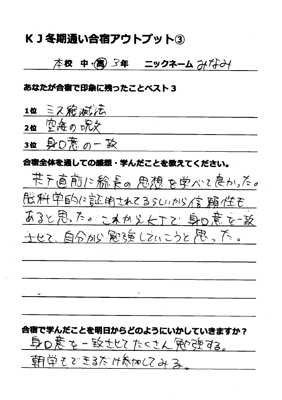 KJ冬期通い合宿アウトプット③
本校 中・高 3年 ニックネーム みなみ
あなたが合宿で印象に残ったことベスト3
1位 ミス撲滅法
2位 空海の呪文
3位 身口意の一致
合宿全体を通しての感想・学んだことを教えてください。
共テ直前に総長の思想を学べて良かった。
脳科学的に証明されてるらしいから信頼性も
あると思った。これからKJで身口意を一致
させて、自分から勉強していこうと思った。
合宿で学んだことを明日からどのようにいかしていきますか？
身口意を一致させてたくさん勉強する。
朝学もできるだけ参加してみる。